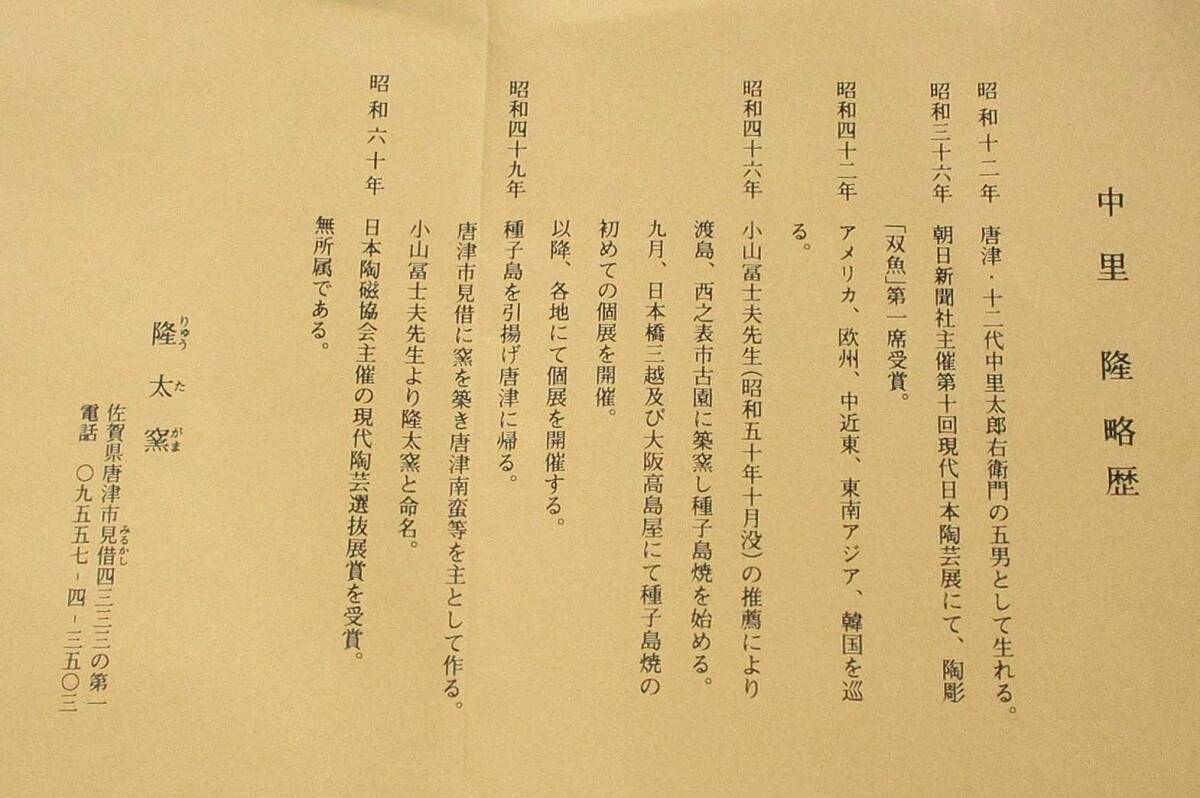 中里隆略歴
昭和十二年 唐津・十二代中里太郎右衛門の五男として生れる。
昭和三十六年 朝日新聞社主催第十回現代日本陶芸展にて、陶彫
「双魚」第一席受賞。
昭和四十二年 アメリカ、欧州、中近東、東南アジア、韓国を巡
る。
昭和四十六年 小山冨士夫先生(昭和五十年十月没)の推薦により
渡島、西之表市古園に築窯し種子島焼を始める。
九月、日本橋三越及び大阪高島屋にて種子島焼の
初めての個展を開催。
以降、各地にて個展を開催する。
昭和四十九年 種子島を引揚げ唐津に帰る。
唐津市見借に窯を築き唐津南蛮等を主として作る。
小山冨士夫先生より隆太窯と命名。
昭和六十年 日本陶磁協会主催の現代陶芸選抜展賞を受賞。
無所属である。
隆太窯
りゅうたがま
佐賀県唐津市見借四三三三の第一
みるかし
電話 〇九五五七-四-三五〇三